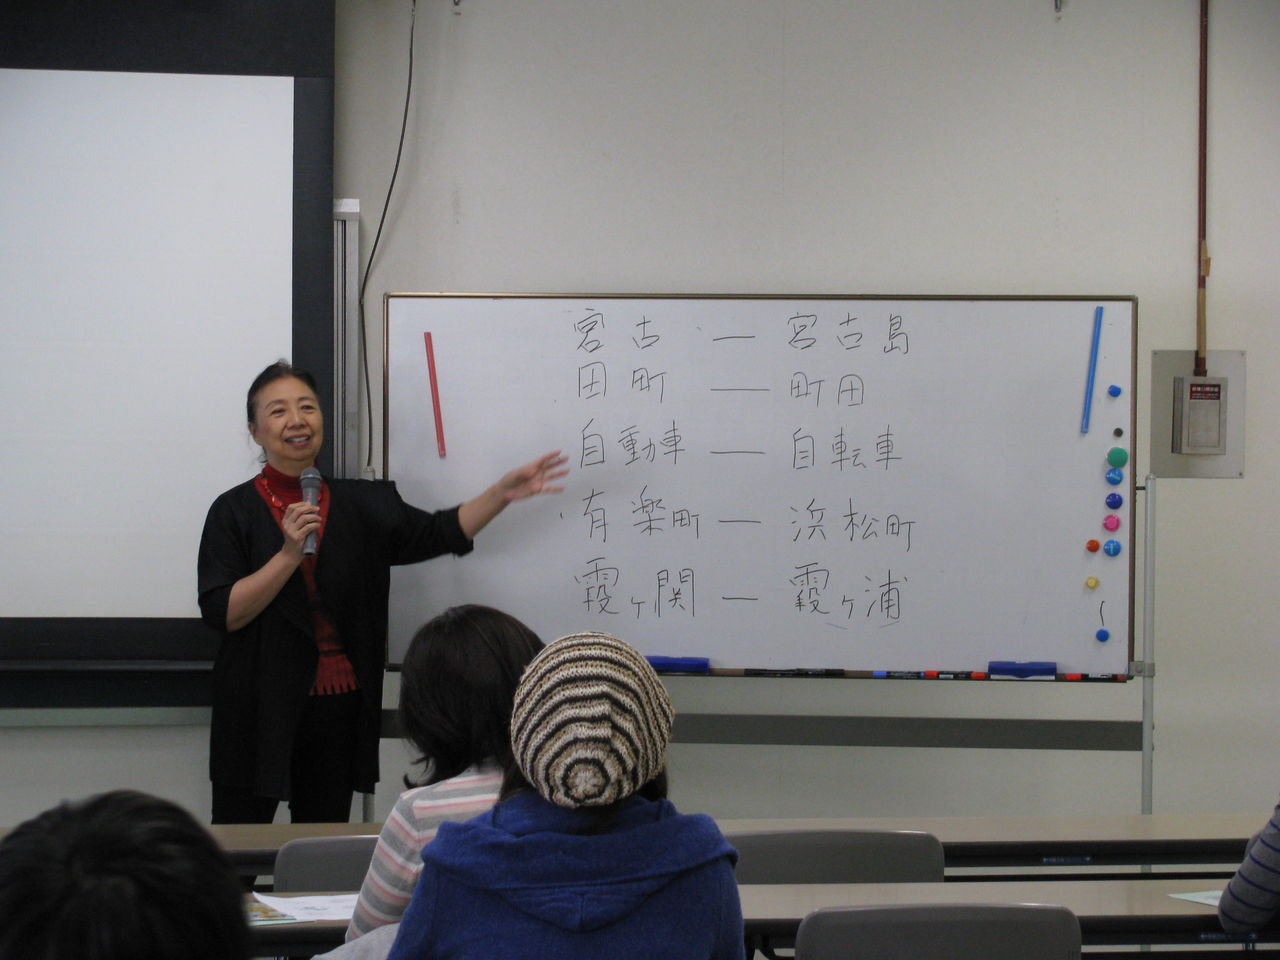 宮古 — 宮古島
田町 — 町田
自動車 — 自転車
有楽町 — 浜松町
霞ヶ関 — 霞ヶ浦